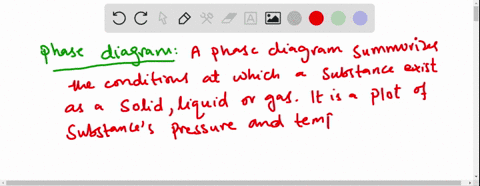 Phase diagram: A phase diagram summarizes
the conditions at which a substance exist
as a solid, liquid or gas. It is a plot of
substance's pressure and temp